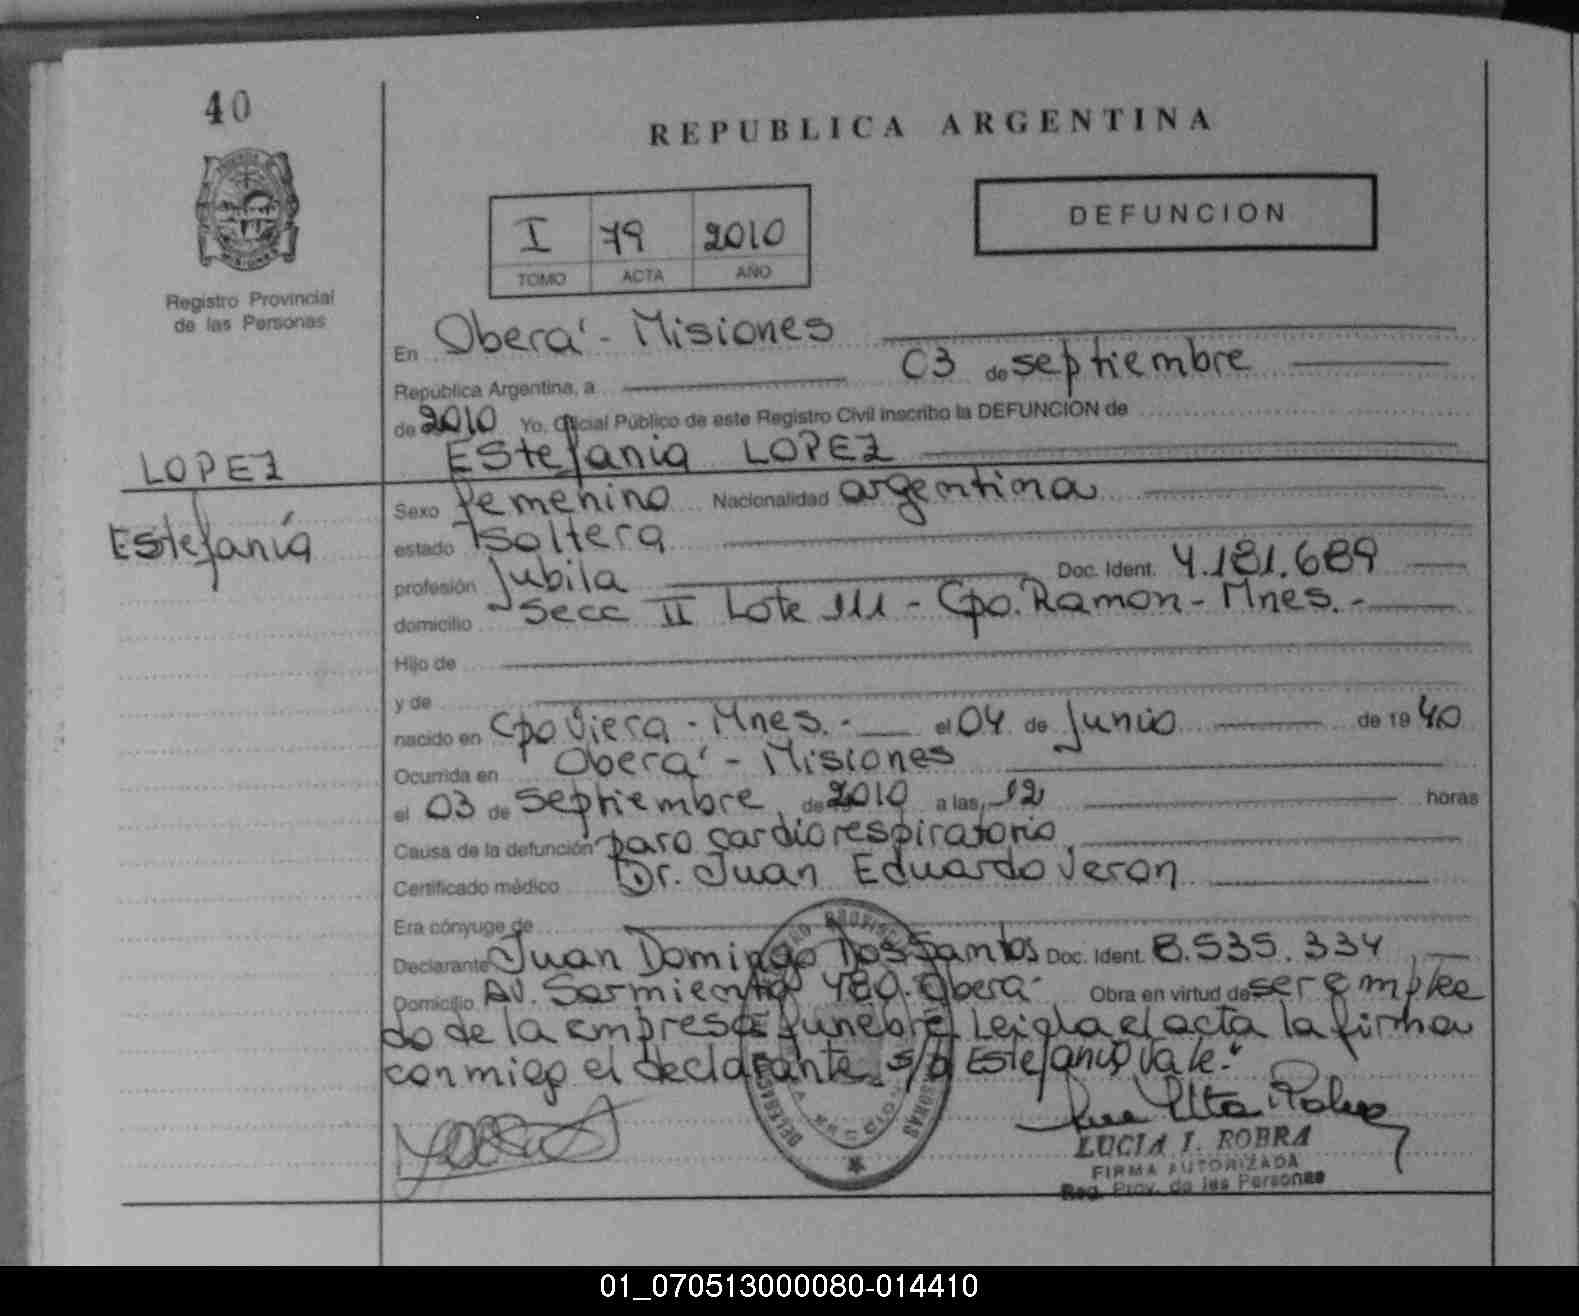 40
REPUBLICA ARGENTINA
DEFUNCION
I 79 2010
TOMO ACTA AÑO
Registro Provincial
de las Personas
En Oberá - Misiones
República Argentina, a 03 de septiembre
de 2010 Yo, Oficial Público de este Registro Civil inscribo la DEFUNCION de
LOPEZ
Estefania LOPEZ
Estefanía
Sexo femenino Nacionalidad argentina
estado soltera
profesión Jubila Doc. Ident. 4.181.689
domicilio Secc II Lote 111 - Cpo. Ramon - Mnes. -
Hijo de
y de
nacido en Cpo Viera - Mnes. - el 04 de Junio de 19 40
Ocurrida en Oberá - Misiones
el 03 de septiembre de 2010 a las 12 horas
Causa de la defunción paro cardiorespiratorio
Certificado médico Dr. Juan Eduardo Veron
Era cónyuge de
Declarante Juan Domingo Dos Santos Doc. Ident. 8.535.334
Domicilio Av. Sarmiento 480. Obera Obra en virtud de ser emplea
do de la empresa funebre. Leida el acta la firma
conmigo el declarante. s/b Estefania vale.
LUCIA I. ROBRA
FIRMA AUTORIZADA
Reg. Prov. de las Personas
01_070513000080-014410